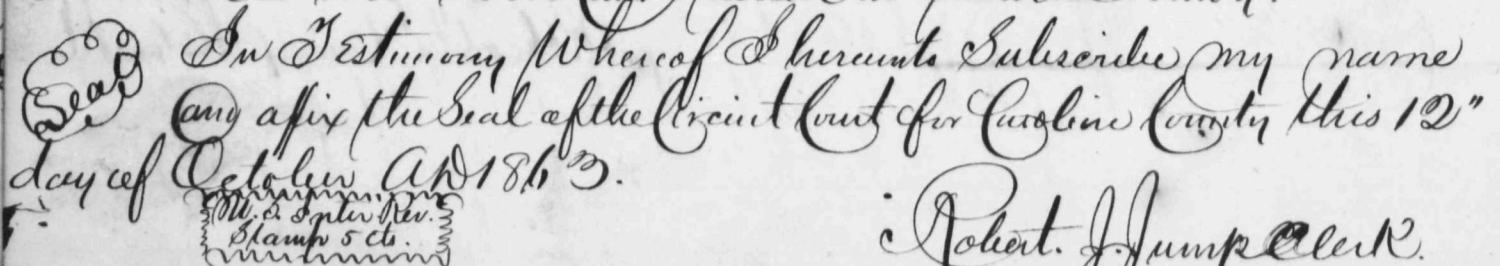 Seal
In Testimony Whereof I hereunto Subscribe my name
and affix the Seal of the Circuit Court for Caroline County this 12"
day of October AD 1863.
U. S. Inter. Rev.
Stamp 5 cts.
Robert. J. Jump Clerk.